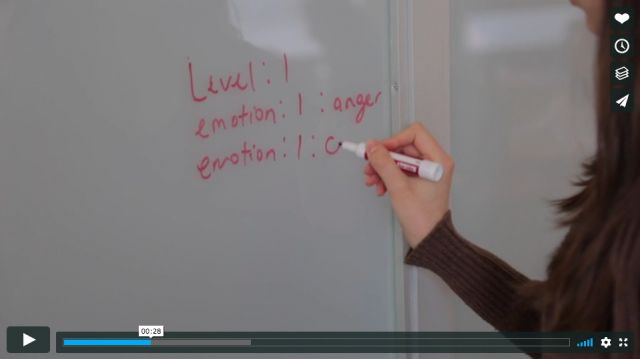 Level: 1
emotion: 1 : anger
emotion: 1 :
00:28